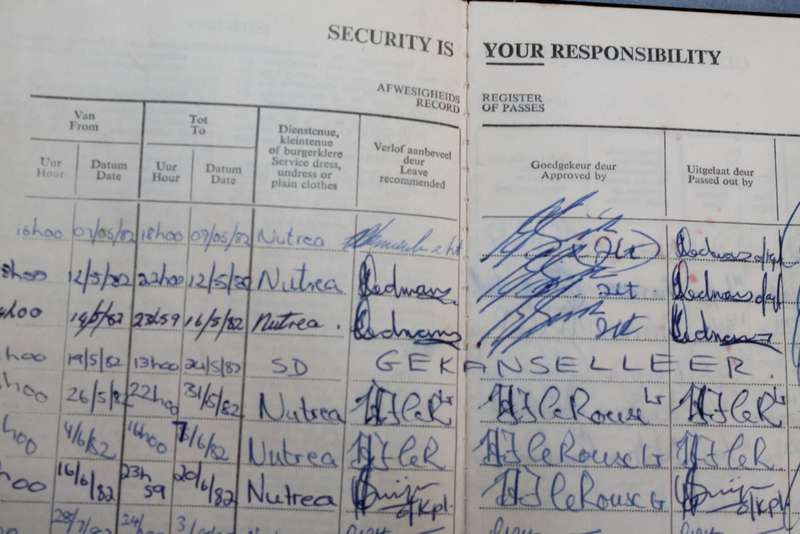 SECURITY IS YOUR RESPONSIBILITY
AFWESIGHEIDS RECORD
REGISTER OF PASSES
Van From
Tot To
Uur Hour
Datum Date
Uur Hour
Datum Date
Dienstenue, kleintenue of burgerklere Service dress, undress or plain clothes
Verlof aanbeveel deur Leave recommended
Goedgekeur deur Approved by
Uitgelaat deur Passed out by
16h00 07/05/82 18h00 09/05/82 Nutrea
h00 12/5/82 22h00 12/5/82 Nutrea
h00 14/5/82 23h59 16/5/82 Nutrea.
h00 19/5/82 13h00 24/5/82 SD GEKANSELLEER.
h00 26/5/82 22h00 31/5/82 Nutrea HJ leR Lt HJ leRoux Lt HJ leR
h00 4/6/82 16h00 7/6/82 Nutrea HJ leR HJ leRoux Lt HJ leR
h00 16/6/82 23h59 20/6/82 Nutrea HJ leRoux Lt
28/7/82